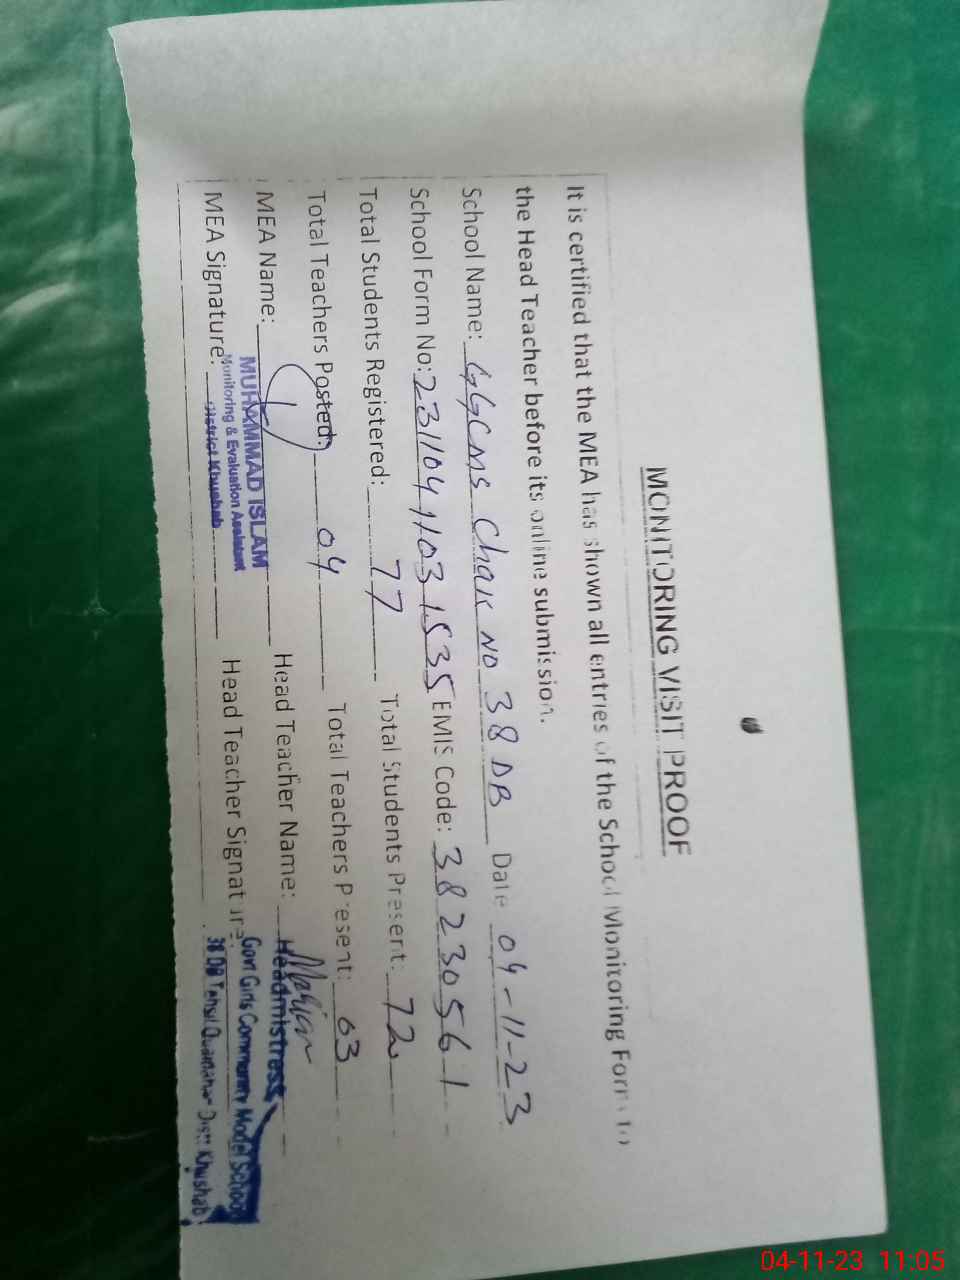 MONITORING VISIT PROOF
It is certified that the MEA has shown all entries of the School Monitoring Form to
the Head Teacher before its online submission.
School Name: GGCMS Chak NO 38 DB Date 04-11-23
School Form No: 231104 1103 1535 EMIS Code: 38230561
Total Students Registered: 77 Total Students Present: 72
Total Teachers Posted: 04 Total Teachers Present: 03
MEA Name: MUHAMMAD ISLAM Head Teacher Name: Headmistress
Monitoring & Evaluation Assistant
MEA Signature: District Khushab Head Teacher Signature: Govt Girls Community Model School
38 DB Tehsil Quaidabad Distt Khushab
04-11-23 11:05